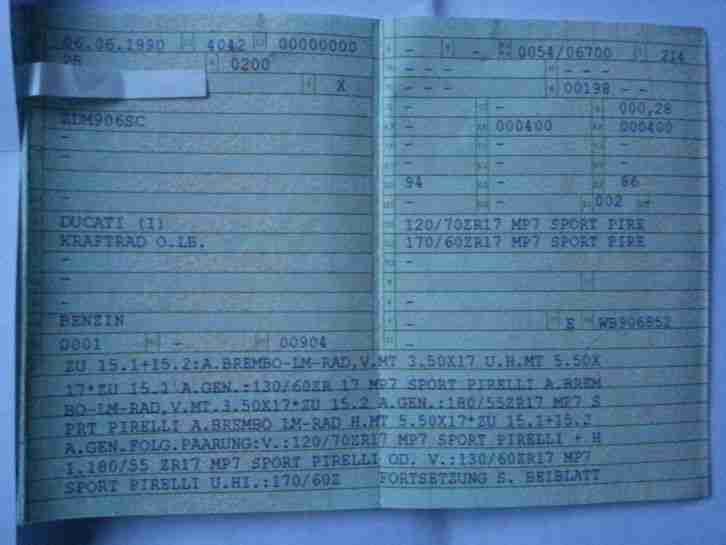 06.06.1990 4042 00000000
25 0200
X
ZDM906SC
-
-
-
-
DUCATI (I)
KRAFTRAD O.LB.
-
-
-
BENZIN
0001 - 00904
- - 0054/06700 214
- - - - - -
00198 - -
- - 000,28
- 000400 000400
- - -
- - -
94 - 86
- - 002
120/70ZR17 MP7 SPORT PIRE
170/60ZR17 MP7 SPORT PIRE
-
-
- E WB906952
-
ZU 15.1+15.2:A.BREMBO-LM-RAD,V.MT 3.50X17 U.H.MT 5.50X
17*ZU 15.1 A.GEN.:130/60ZR 17 MP7 SPORT PIRELLI A.BREM
BO-LM-RAD,V.MT.3.50X17*ZU 15.2 A.GEN.:180/55ZR17 MP7 S
PRT PIRELLI A.BREMBO LM-RAD H.MT 5.50X17*ZU 15.1+15.2
A.GEN.FOLG.PAARUNG:V.:120/70ZR17 MP7 SPORT PIRELLI + H
I.180/55 ZR17 MP7 SPORT PIRELLI OD. V.:130/60ZR17 MP7
SPORT PIRELLI U.HI.:170/60Z FORTSETZUNG S. BEIBLATT